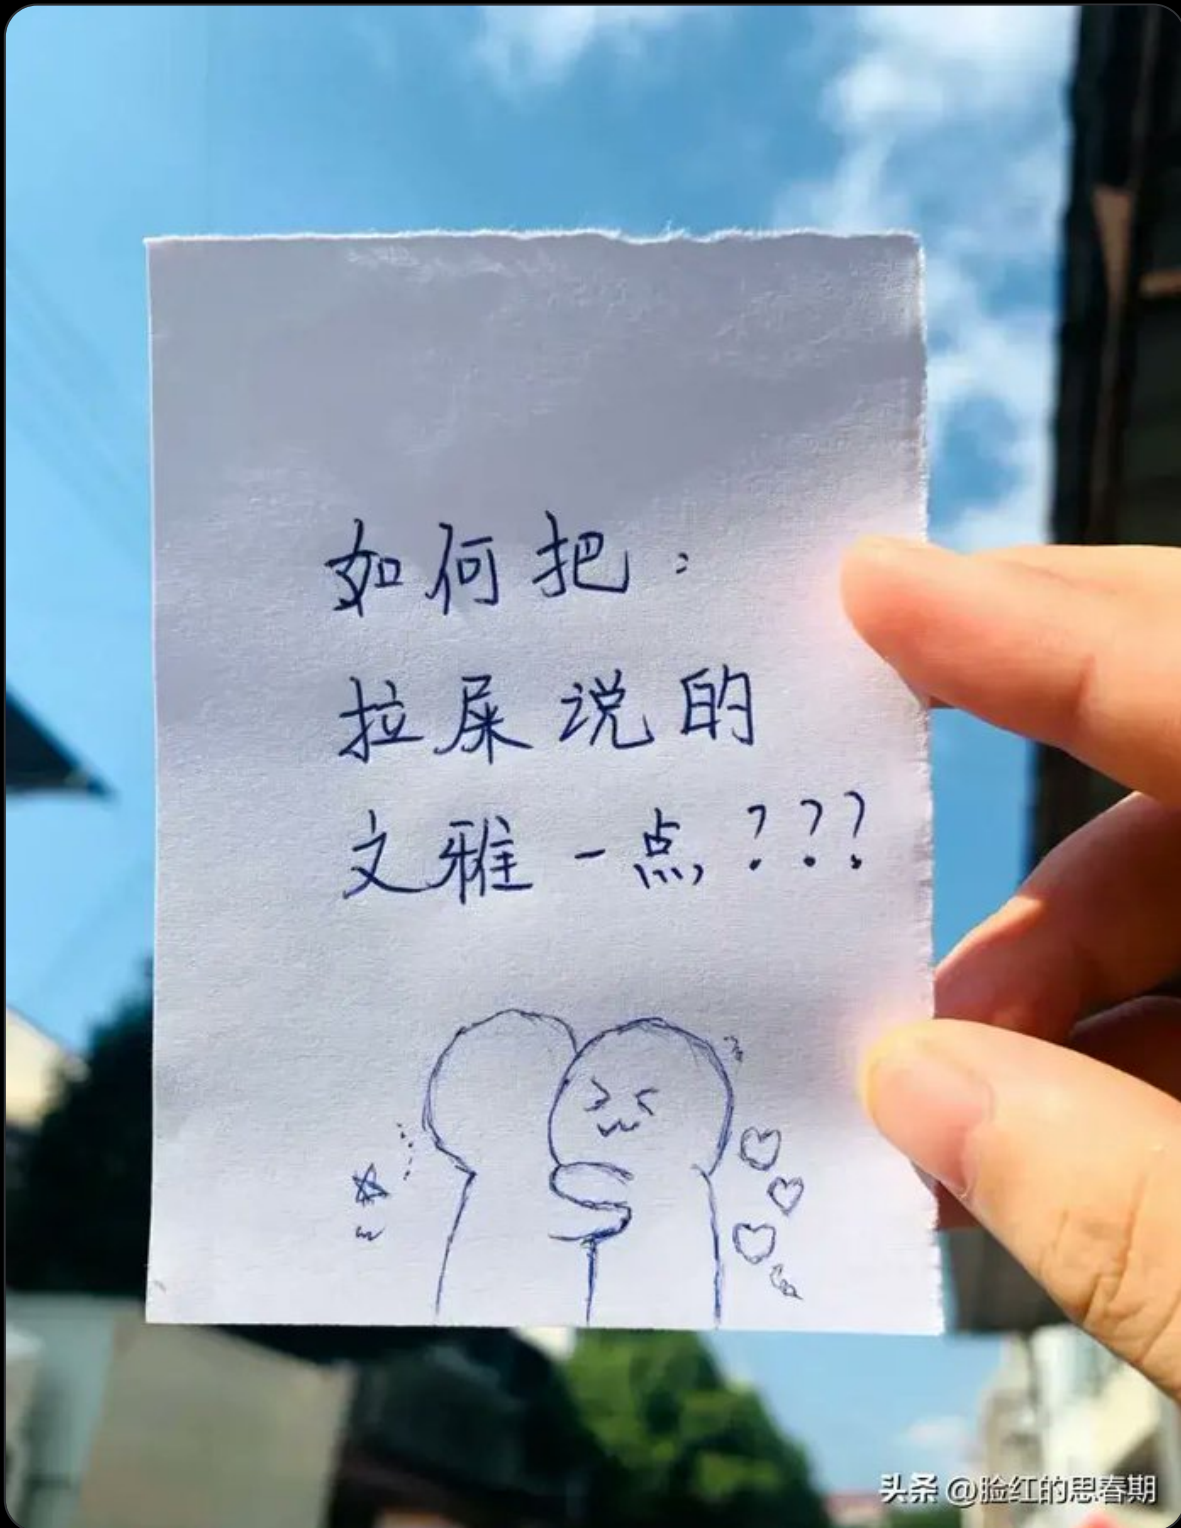 如何把：
拉屎说的
文雅一点，???
头条 @脸红的思春期